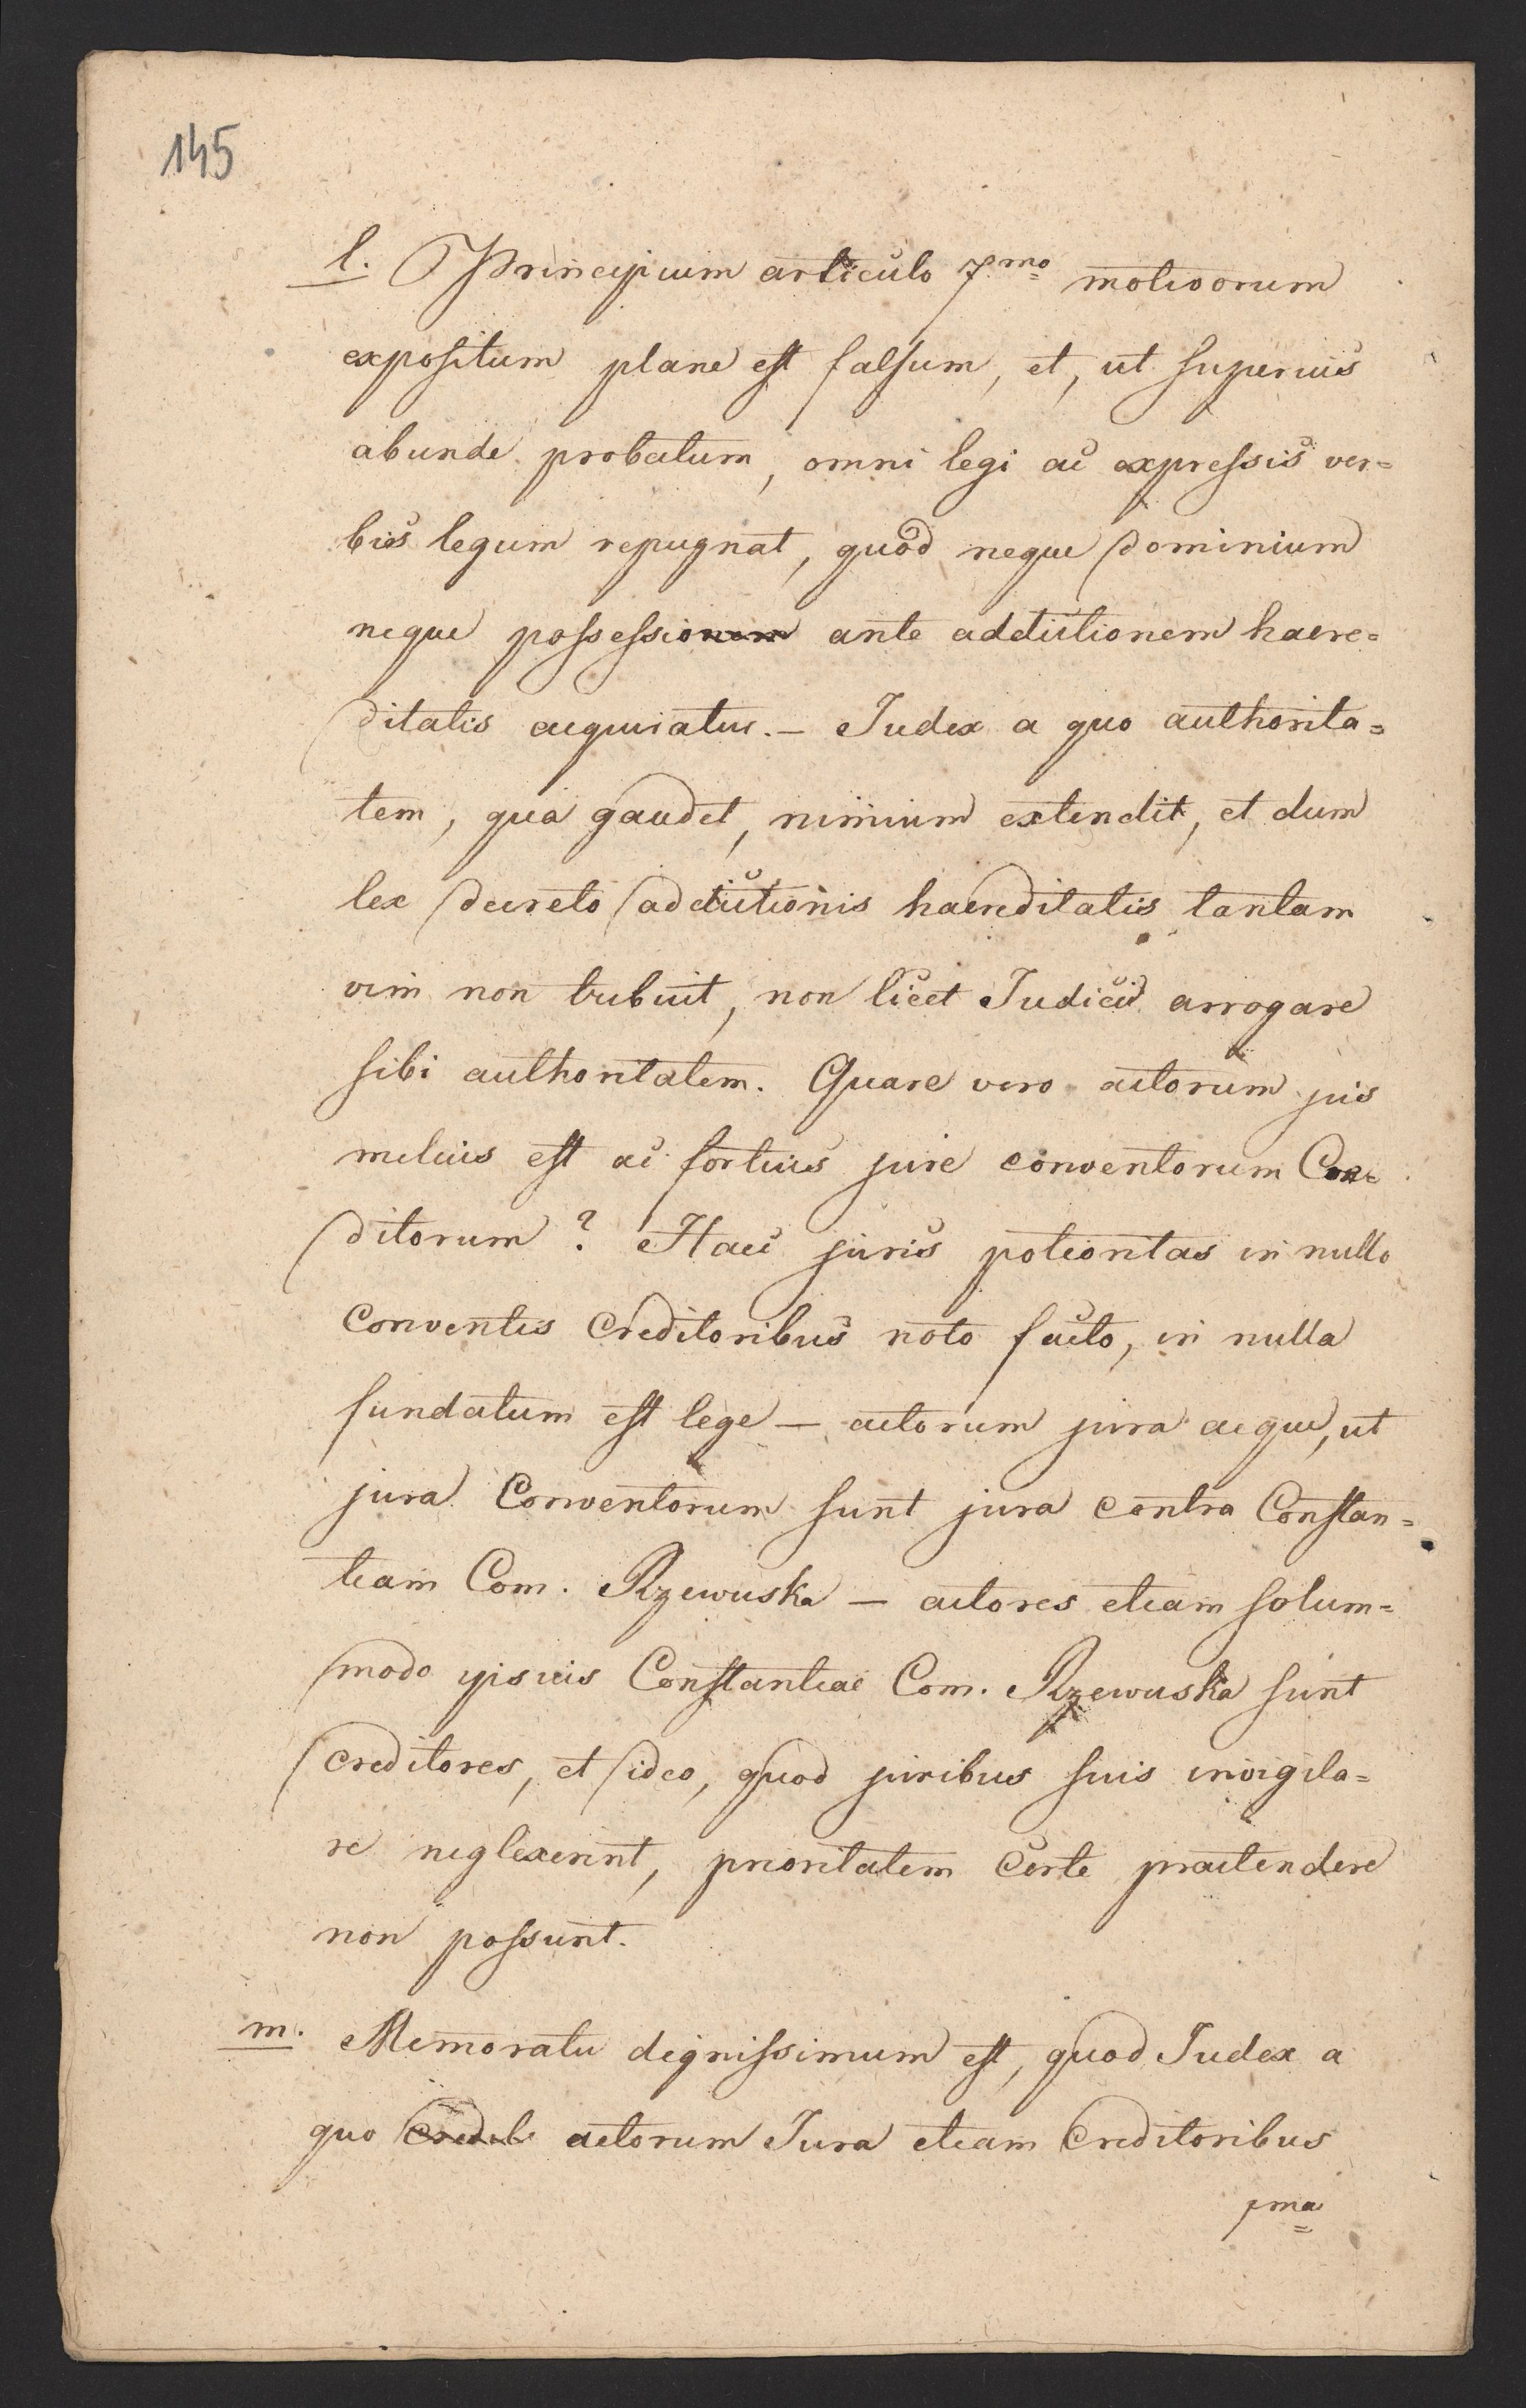 145
l. Principium articulo 7mo motivorum
expositum plane est falsum, et, ut superius
abunde probatum, omni legi ac expressis ver=
bis legum repugnat, quod neque dominium
neque possessionem ante addictionem haere=
ditatis acquiratur. – Judex a quo authorita=
tem, qua gaudet, nimium extendit, et dum
lex decreto addictionis haereditatis tantam
vim non tribuit, non licet Judici arrogare
sibi authoritatem. Quare vero actorum jus
melius est ac fortius jure conventorum Cre=
ditorum? Haec juris potioritas in nullo
conventis Creditoribus noto facto, in nulla
fundatum est lege – actorum jura aeque, ut
jura Conventorum sunt jura contra Constan=
tiam Com. Rzewuska – actores etiam solum=
modo ipsius Constantiae Com. Rzewuska sunt
creditores, et ideo, quod juribus suis invigila=
re neglexerint, prioritatem certe praetendere
non possunt.
m. Memoratu dignissimum est, quod Judex a
quo actorum Jura etiam Creditoribus
pma